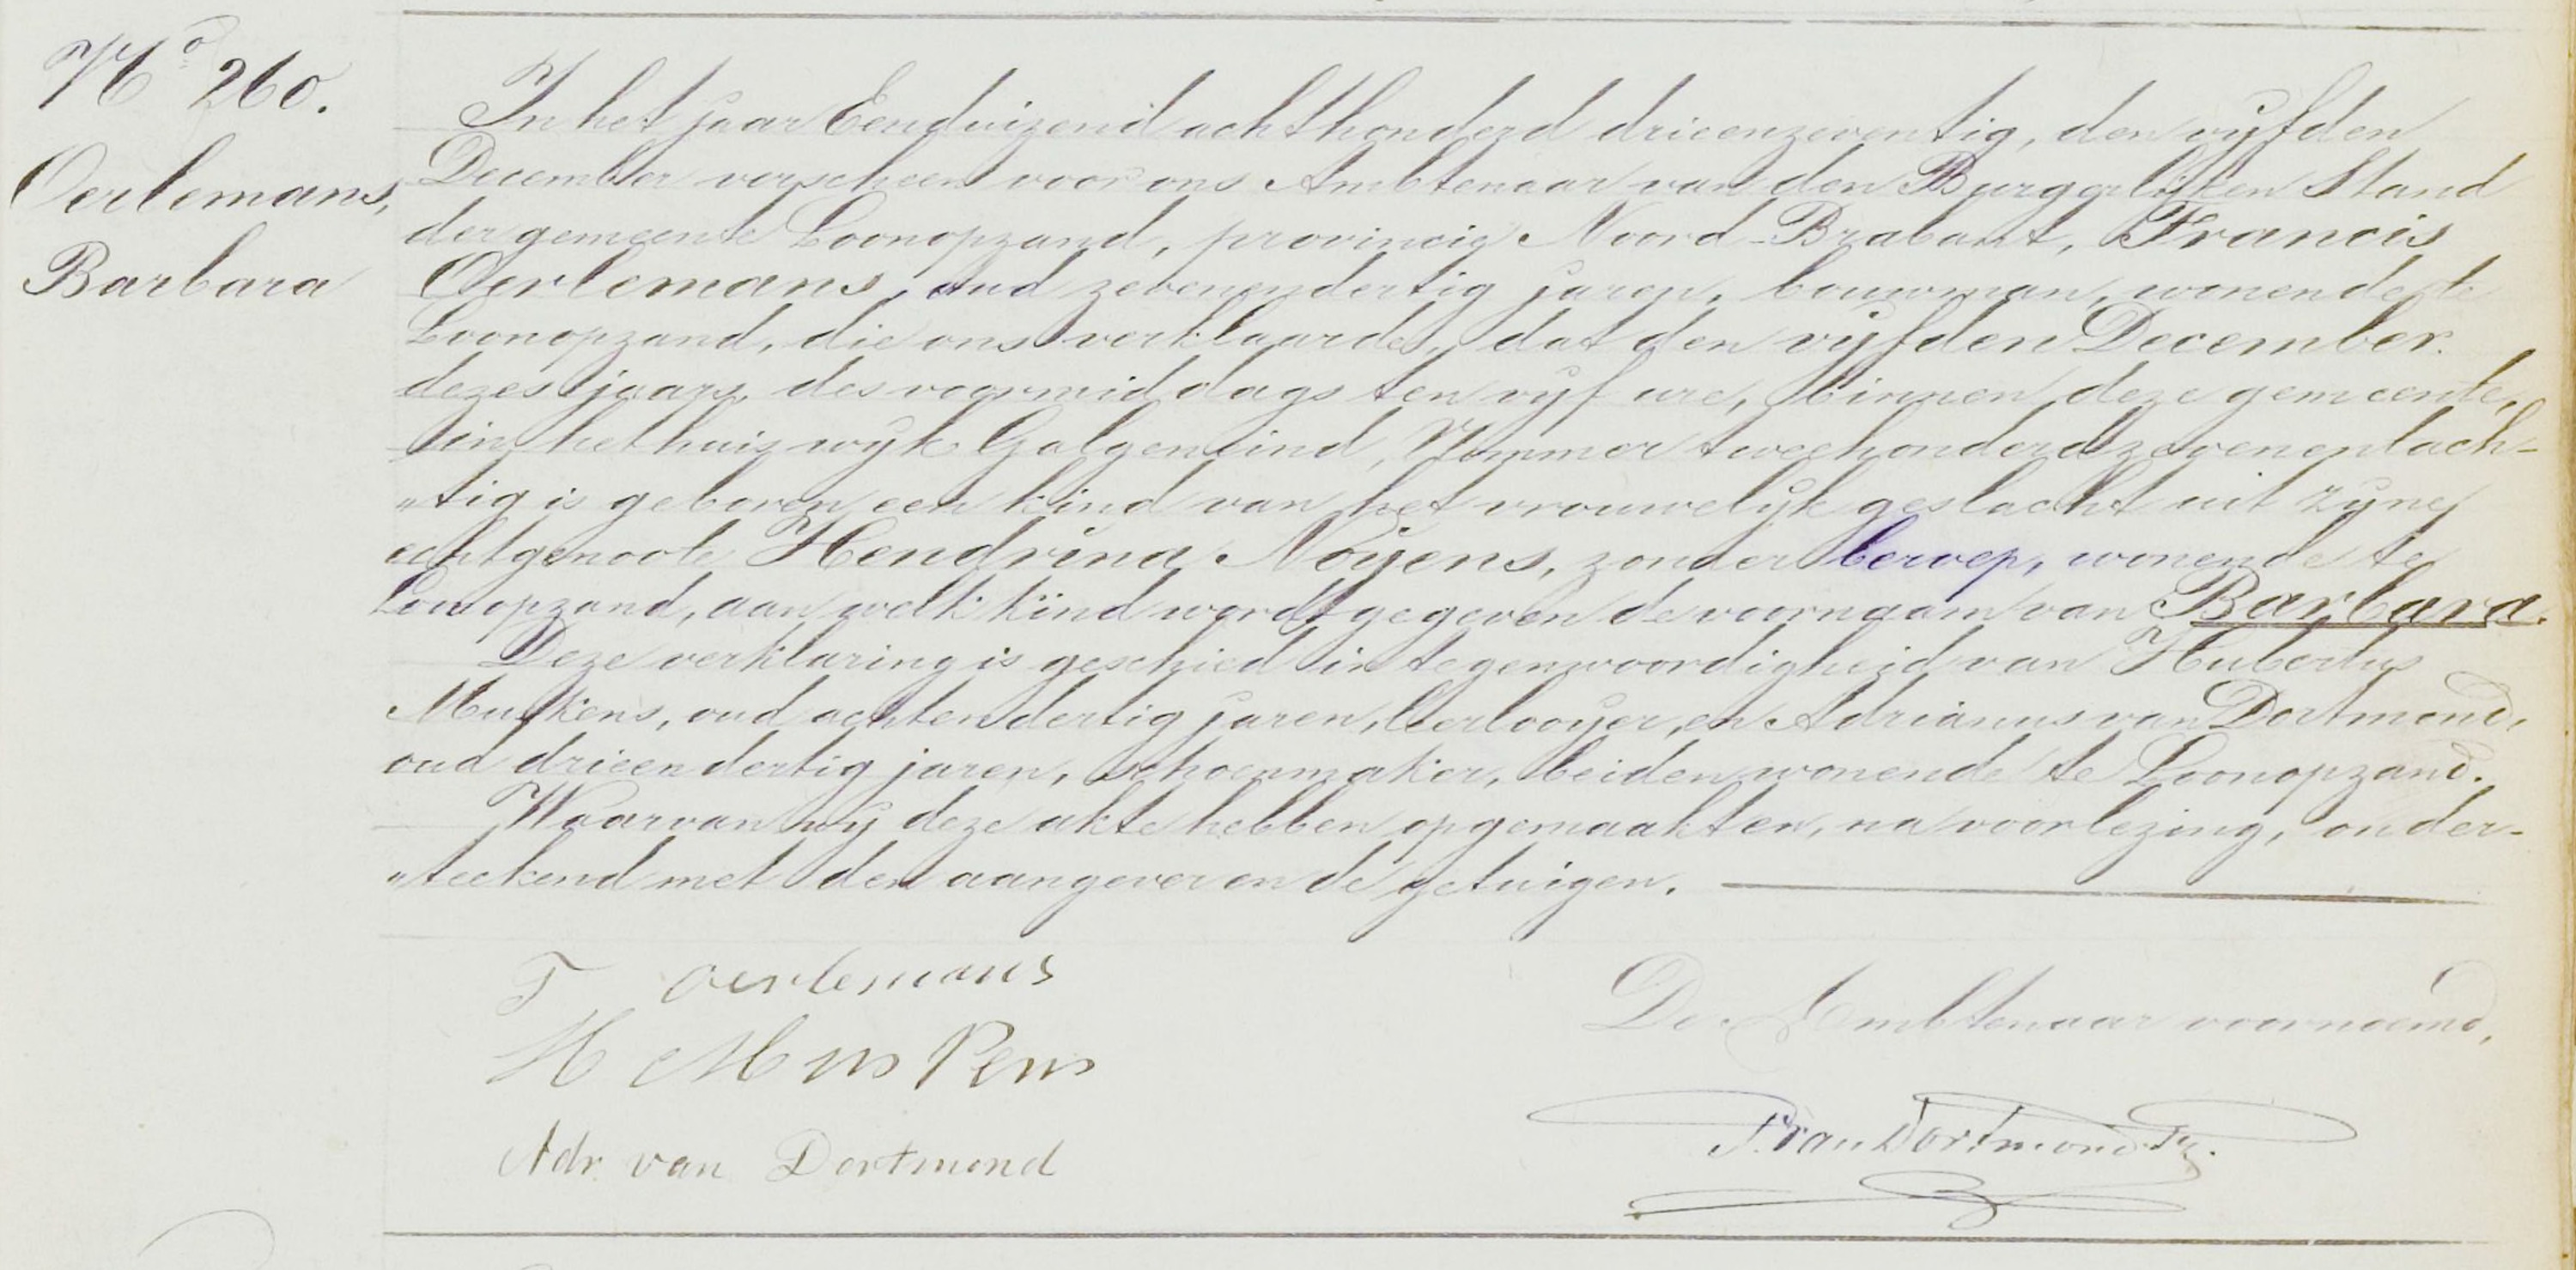 No 260.
Oerlemans,
Barbara
In het jaar Eenduizend achthonderd drieenzeventig, den vyfden
December verscheen voor ons Ambtenaar van den Burgerlijken Stand
der gemeente Loonopzand, provincie Noord-Brabant, Francis
Oerlemans, oud zevenendertig jaren, bouwman, wonende te
Loonopzand, die ons verklaarde, dat den vyfden December
dezes jaars, des voormiddags ten vyf ure, binnen deze gemeente,
in het huis wyk Galgeneind, Nummer tweehonderd zevenentach-
„tig is geboren een kind van het vrouwelyk geslacht uit zyne
echtgenoote Hendrina Noyens, zonder beroep, wonende te
Loonopzand, aan welk kind wordt gegeven de voornaam van Barbara.
Deze verklaring is geschied in tegenwoordigheid van Hubertus
Muskens, oud achtendertig jaren, leerlooyer, en Adrianus van Dortmond,
oud drieendertig jaren, schoenmaker, beiden wonende te Loonopzand.
Waarvan wy deze akte hebben opgemaakt en, na voorlezing, onder-
„teekend met den aangever en de getuigen.
F Oerlemans
H Muskens
Adr. van Dortmond
De Ambtenaar voornoemd,
P. van Dortmond